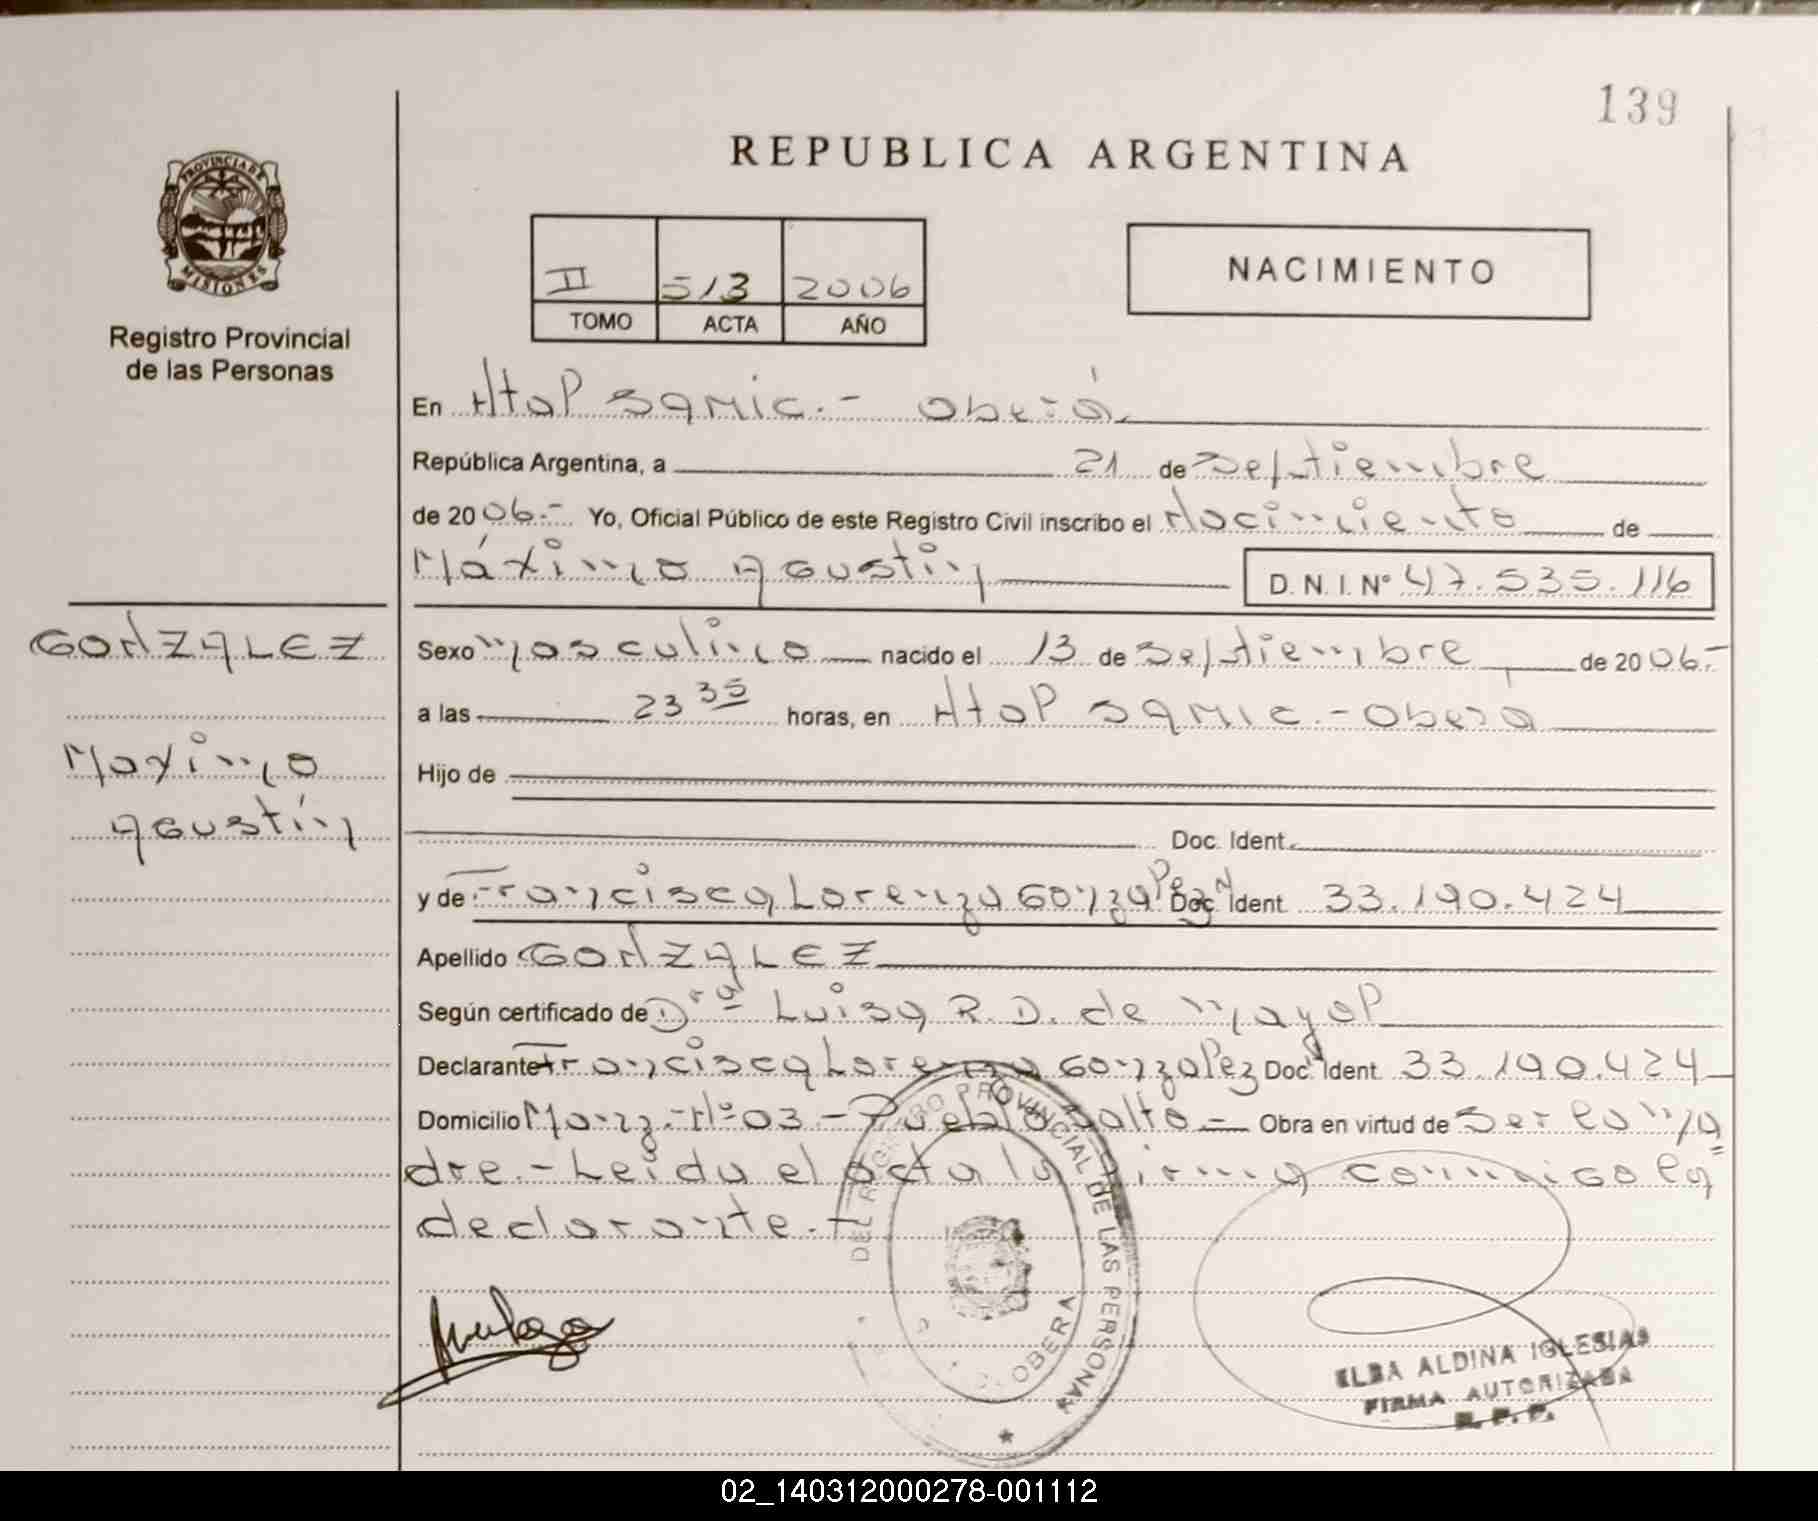 139
REPUBLICA ARGENTINA
PROVINCIA DE
MISIONES
Registro Provincial
de las Personas
II 513 2006
TOMO ACTA AÑO
NACIMIENTO
En Htal Samic.- Oberá
República Argentina, a 21 de Septiembre
de 2006.- Yo, Oficial Público de este Registro Civil inscribo el Nacimiento de
Máximo Agustin D. N. I. Nº 47.535.116
GONZALEZ
Maximo
Agustín
Sexo masculino nacido el 13 de Septiembre de 2006.-
a las 23 35 horas, en Htal Samic.- Oberá
Hijo de
Doc. Ident.
y de Francisca Lorenza Gonzalez Doc. Ident. 33.190.424
Apellido GONZALEZ
Según certificado de Drª Luisa R. D. de Mayol
Declarante Francisca Lorenza Gonzalez Doc. Ident. 33.190.424
Domicilio Manz.-Nº03.- Pueblo Salto.- Obra en virtud de Ser la ma
dre.- Leida el acta la firma conmigo la
declarante.-
DEL REGISTRO PROVINCIAL DE LAS PERSONAS
OBERA
ELBA ALDINA IGLESIAS
FIRMA AUTORIZADA
R. P. P.
02_140312000278-001112